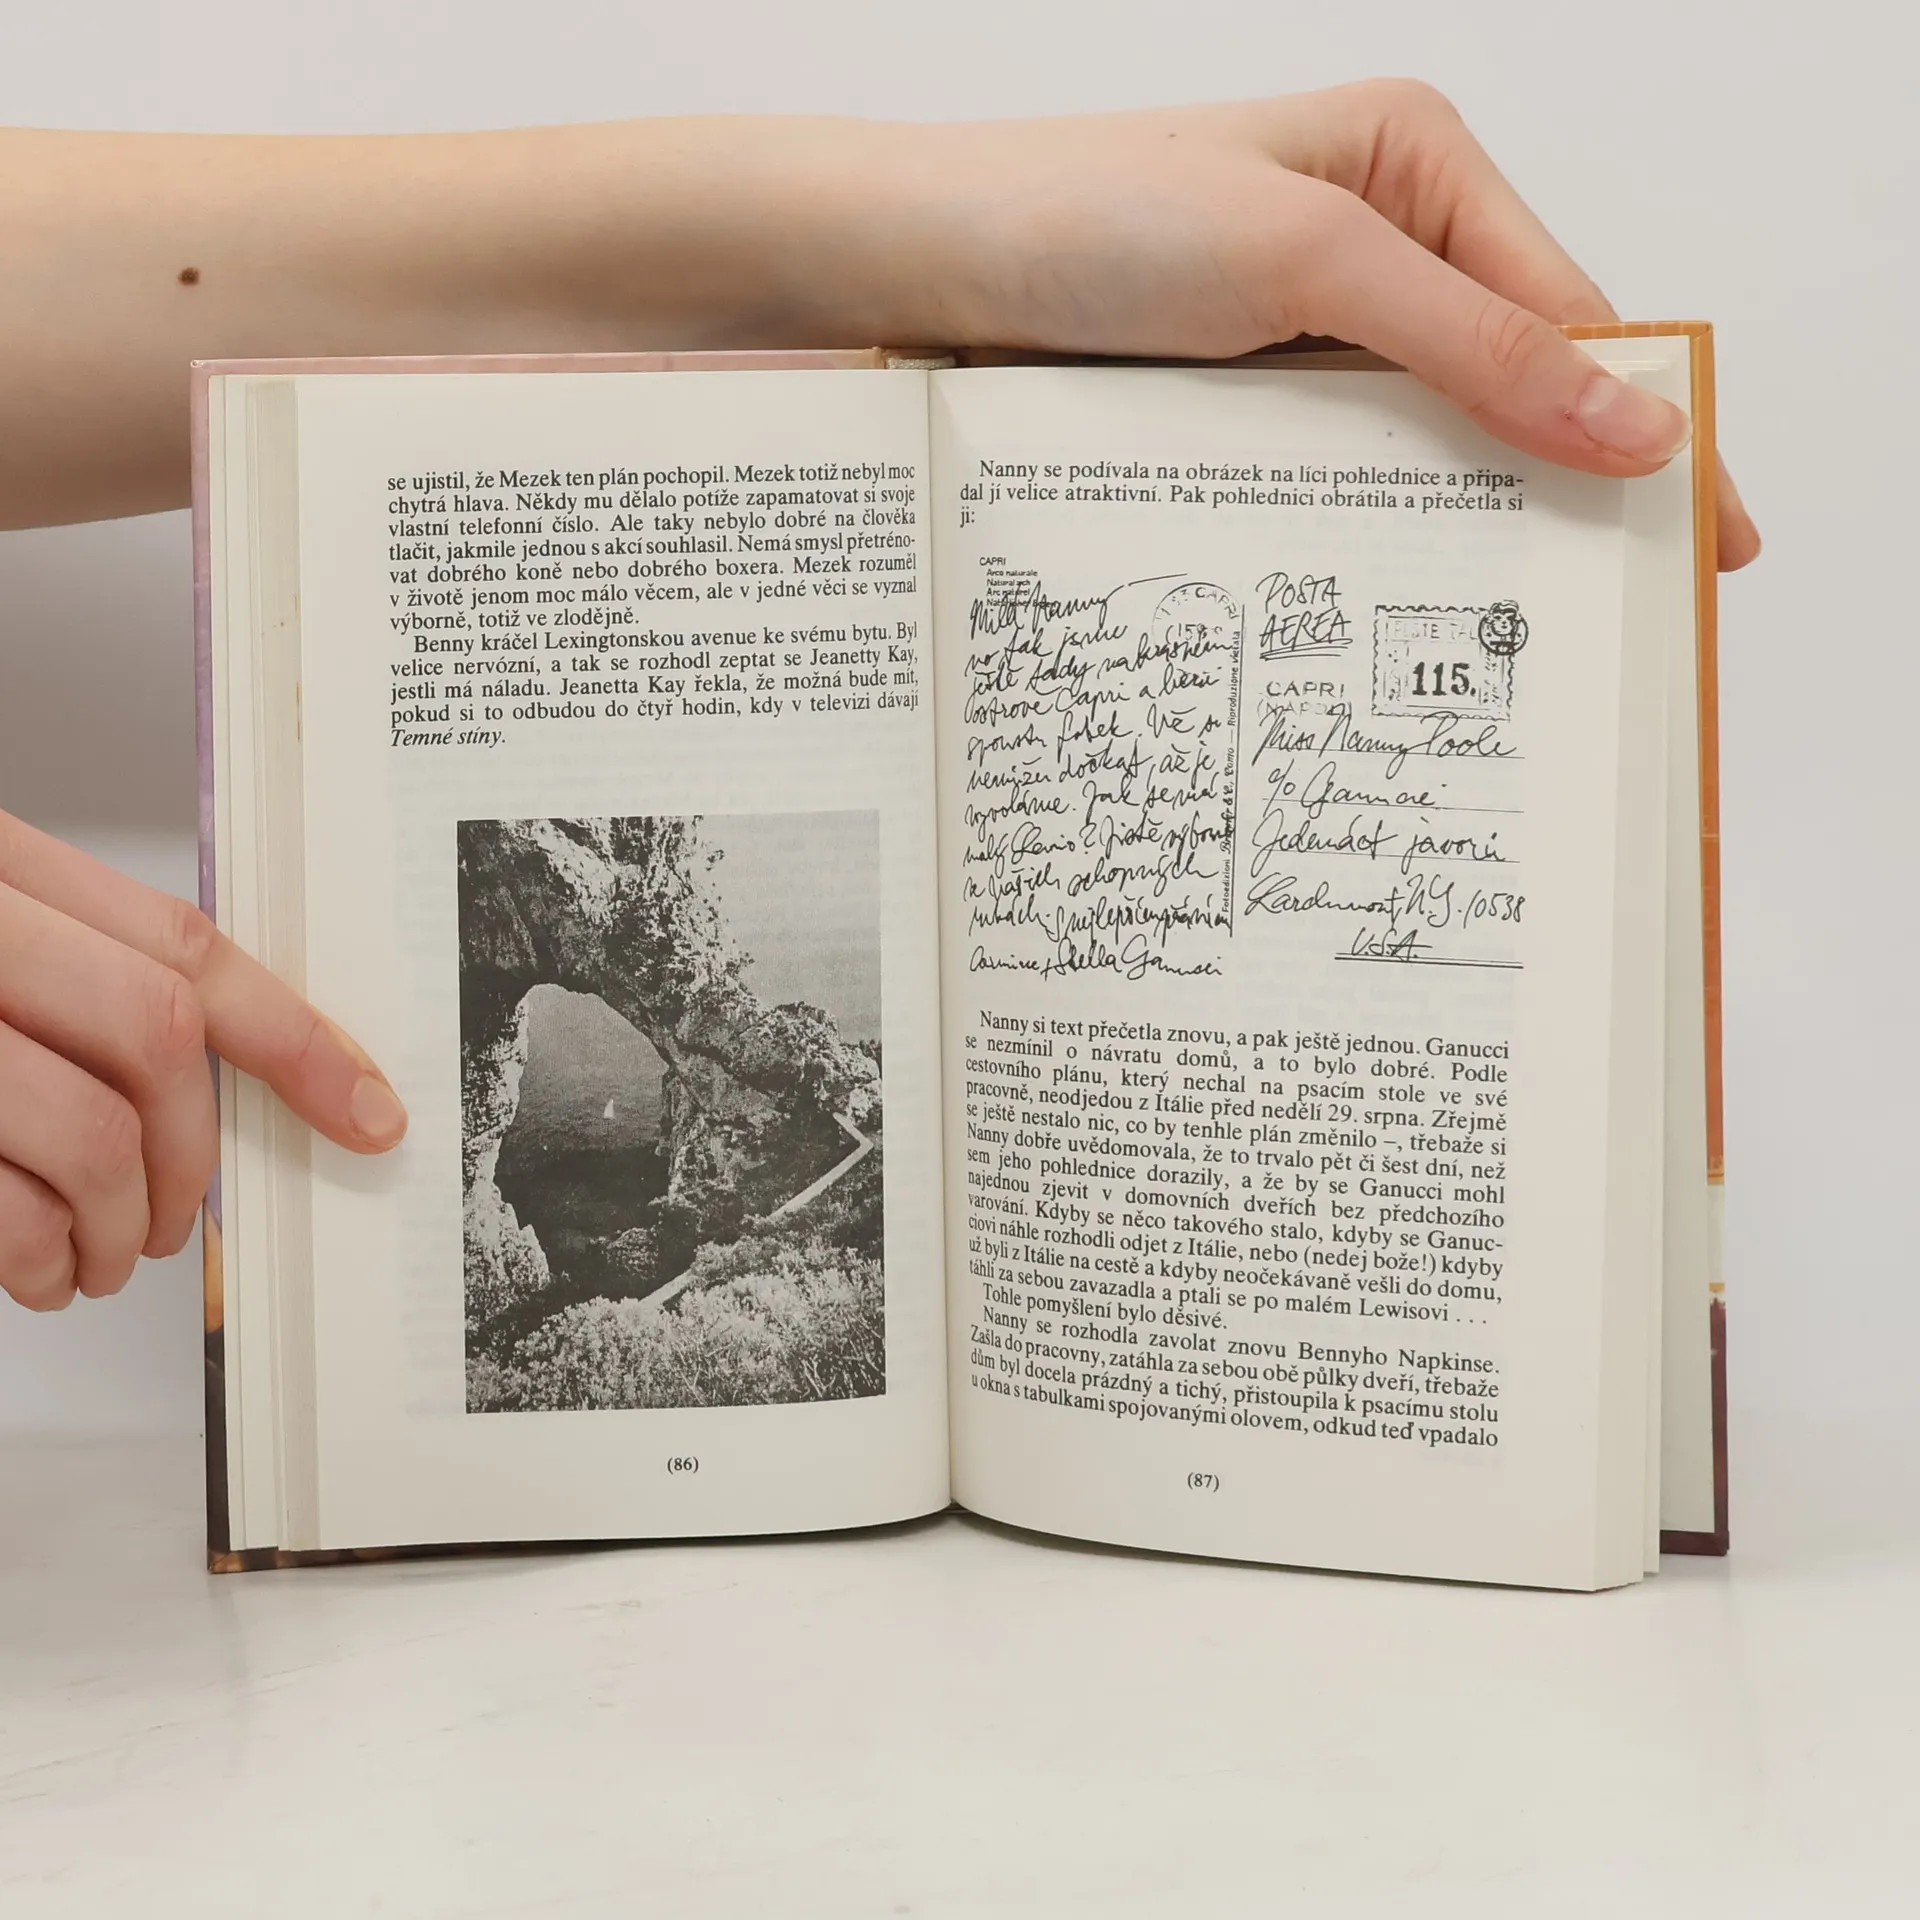 se ujistil, že Mezek ten plán pochopil. Mezek totiž nebyl moc
chytrá hlava. Někdy mu dělalo potíže zapamatovat si svoje
vlastní telefonní číslo. Ale taky nebylo dobré na člověka
tlačit, jakmile jednou s akcí souhlasil. Nemá smysl přetréno-
vat dobrého koně nebo dobrého boxera. Mezek rozuměl
v životě jenom moc málo věcem, ale v jedné věci se vyznal
výborně, totiž ve zlodějně.
Benny kráčel Lexingtonskou avenue ke svému bytu. Byl
velice nervózní, a tak se rozhodl zeptat se Jeanetty Kay,
jestli má náladu. Jeanetta Kay řekla, že možná bude mít,
pokud si to odbudou do čtyř hodin, kdy v televizi dávají
Temné stíny.
(86)
Nanny se podívala na obrázek na líci pohlednice a připa-
dal jí velice atraktivní. Pak pohlednici obrátila a přečetla si
ji:
CAPRI
Arco naturale
Natural arch
Arc naturel
Milá Nanny
no tak jsme
ještě tady na krásném
ostrově Capri a
spoustu fotek. Už se
nemůžu dočkat, až je
vyvoláme. Jak se má
malý Lewis? Jistě výborně
ve Vašich schopných
rukách. S nejlepším přáním
Carmine + Stella Ganucci
CAPRI
POSTA
AEREA
115.
CAPRI
(NAPOLI)
Miss Nanny Poole
c/o Ganucci
Jedenáct javorů
Larchmont, N.Y. 10538
U.S.A.
Riproduzione vietata
Fotoedizioni
Nanny si text přečetla znovu, a pak ještě jednou. Ganucci
se nezmínil o návratu domů, a to bylo dobré. Podle
cestovního plánu, který nechal na psacím stole ve své
pracovně, neodjedou z Itálie před nedělí 29. srpna. Zřejmě
se ještě nestalo nic, co by tenhle plán změnilo –, třebaže si
Nanny dobře uvědomovala, že to trvalo pět či šest dní, než
sem jeho pohlednice dorazily, a že by se Ganucci mohl
najednou zjevit v domovních dveřích bez předchozího
varování. Kdyby se něco takového stalo, kdyby se Ganuc-
ciovi náhle rozhodli odjet z Itálie, nebo (nedej bože!) kdyby
už byli z Itálie na cestě a kdyby neočekávaně vešli do domu,
táhli za sebou zavazadla a ptali se po malém Lewisovi . . .
Tohle pomyšlení bylo děsivé.
Nanny se rozhodla zavolat znovu Bennyho Napkinse.
Zašla do pracovny, zatáhla za sebou obě půlky dveří, třebaže
dům byl docela prázdný a tichý, přistoupila k psacímu stolu
u okna s tabulkami spojovanými olovem, odkud teď vpadalo
(87)